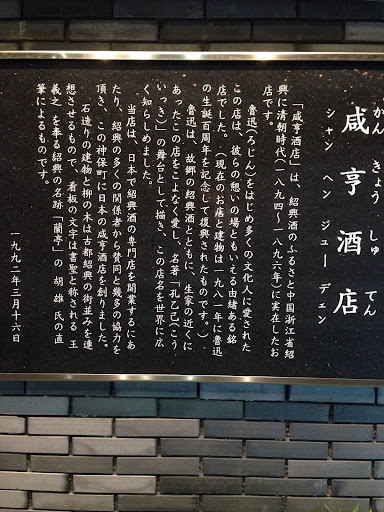 かん きょう しゅ てん
咸亨酒店
シャン ヘン ジュー デェン
「咸亨酒店」は、紹興酒のふるさと中国浙江省紹
興に清朝時代(一八九四〜一八九六年)に実在したお
店です。
魯迅(ろじん)をはじめ多くの文化人に愛された
この店は、彼らの憩いの場ともいえる由緒ある銘
店でした。(現在のお店と建物は一九八一年に魯迅
の生誕百周年を記念して復興されたものです。)
魯迅は、故郷の紹興酒とともに、生家の近くに
あったこの店をこよなく愛し、名著「孔乙己(こう
いっき)」の舞台として描き、この店名を世界に広
く知らしめました。
当店は、日本で紹興酒の専門店を開業するにあ
たり、紹興の多くの関係者から賛同と幾多の協力を
頂き、この神保町に日本の咸亨酒店を創りました。
石造りの建物と柳の木は古都紹興の街並みを連
想させるもので、看板の文字は書聖と称される 王
義之 を奉る紹興の名跡「蘭亭」の 胡 雄 氏の直
筆によるものです。
一九九二年三月十六日